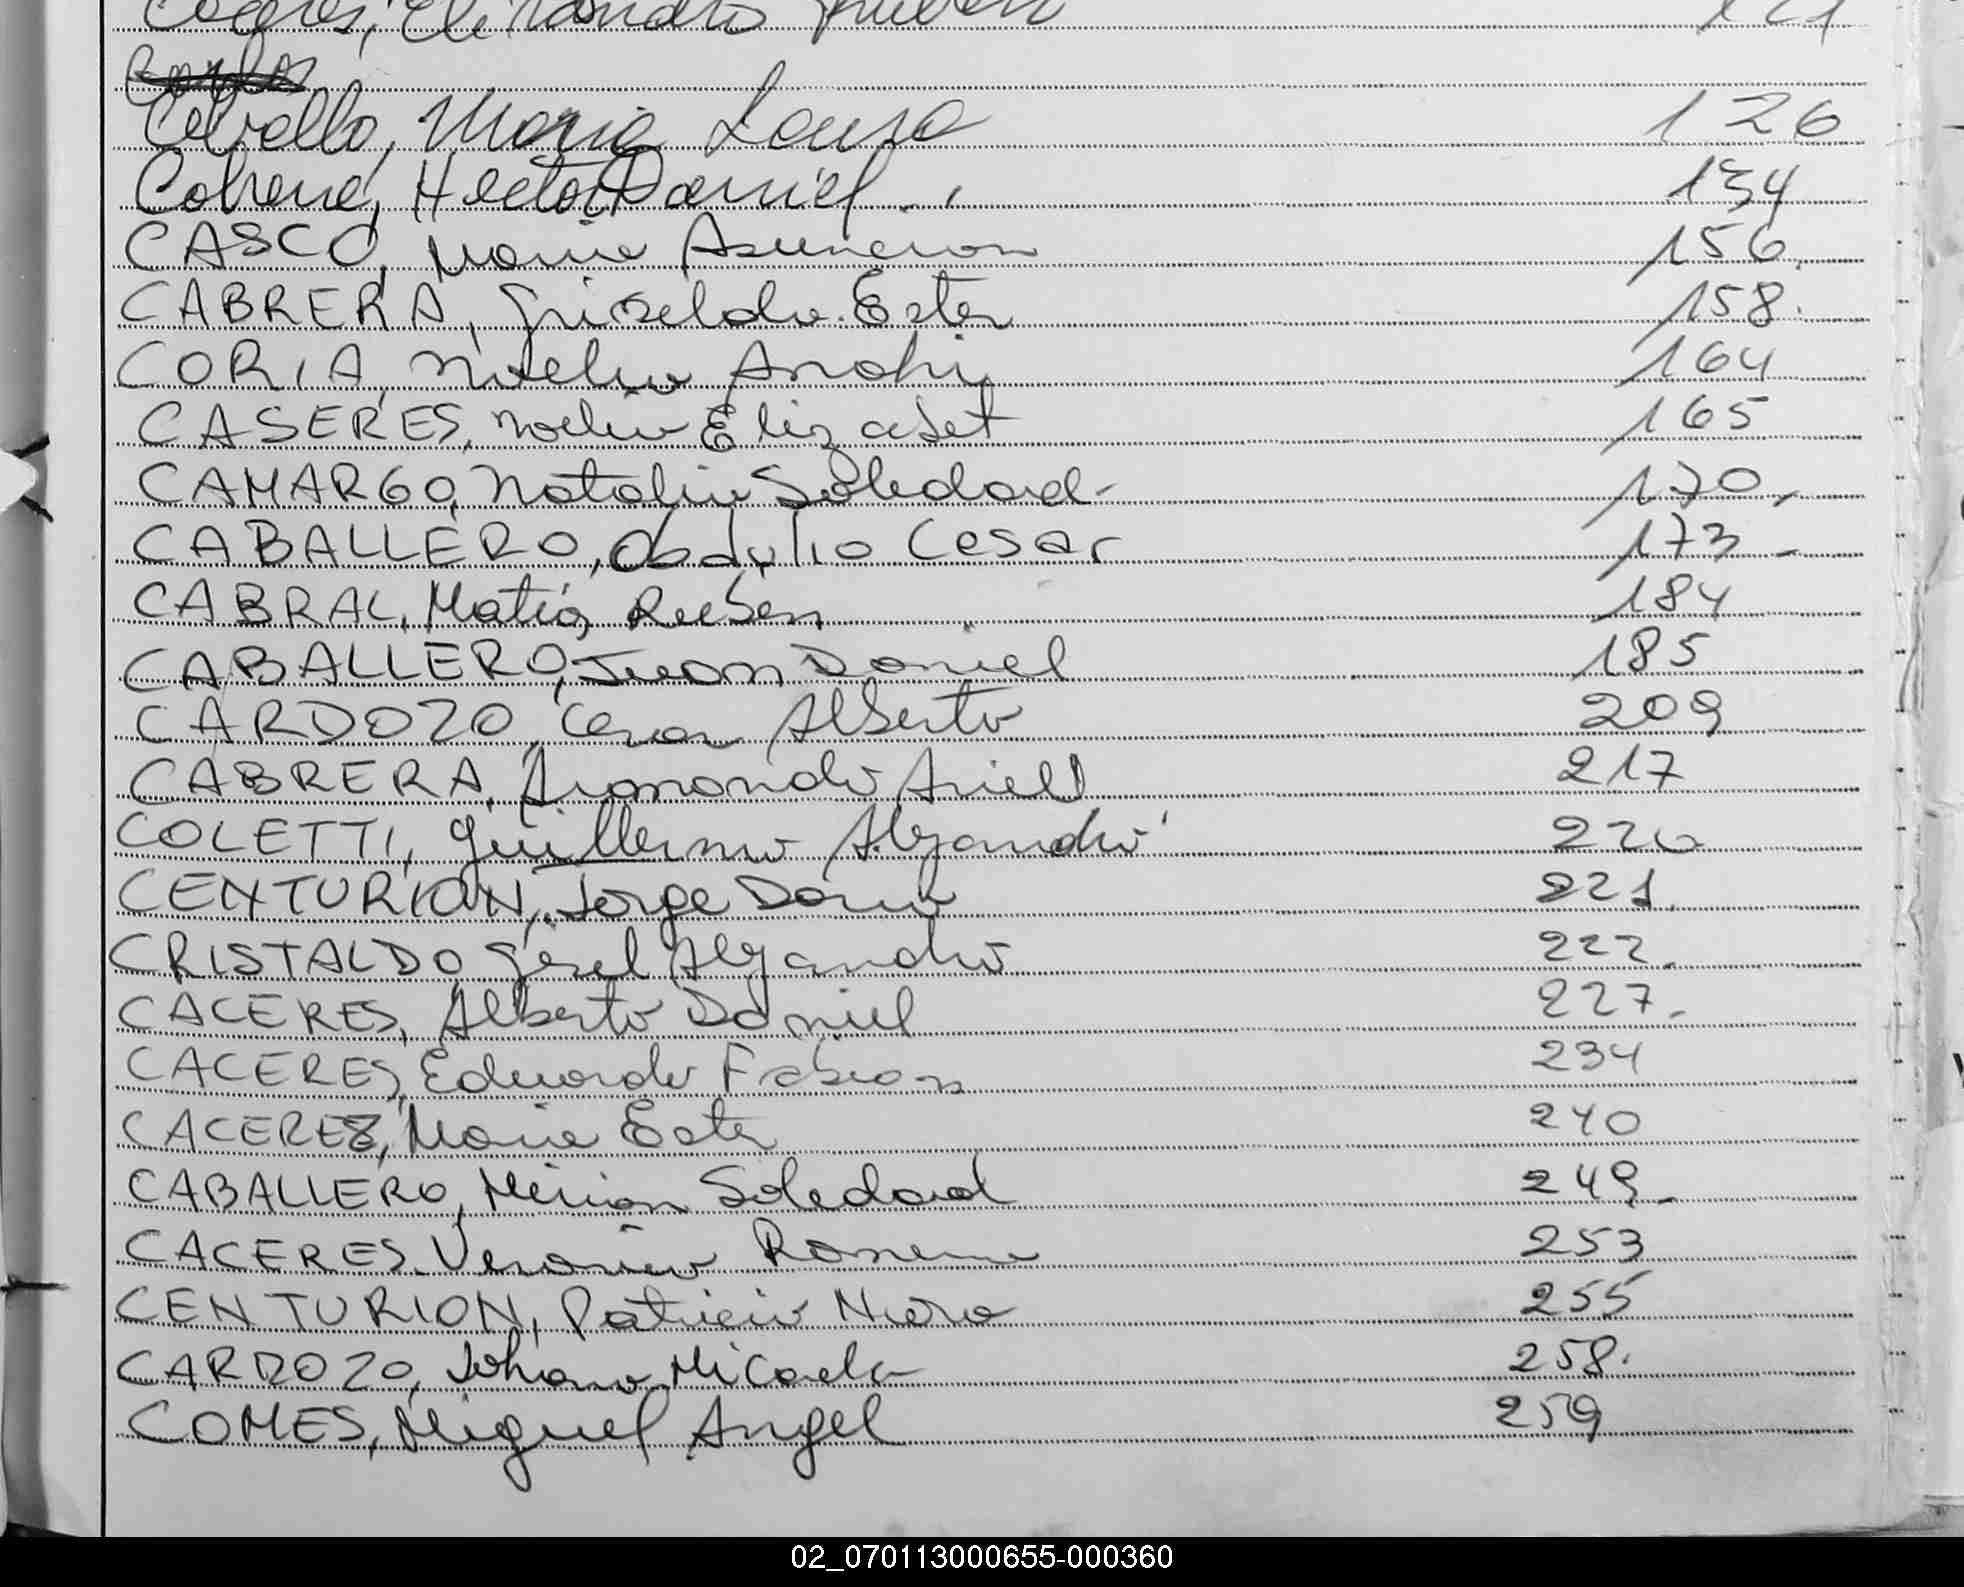 Maria Luisa 126
Hector Daniel 134
CASCO, Maria Asuncion 156.
CABRERA, Griselda Ester 158.
CORIA, Noelia Anahi 164
CASERES, Noelia Elizabet 165
CAMARGO, Natalia Soledad 170.
CABALLERO, Obdulio Cesar 173 -
CABRAL, Matia Ruben 184
CABALLERO, Juan Daniel 185
CARDOZO, Cesar Alberto 209
CABRERA, Armando Ariel 217
COLETTI, Guillermo Alejandro 220
CENTURION, Jorge Dario 221
CRISTALDO Alejandro 222.
CACERES, Alberto Daniel 227.
CACERES, Eduardo Fabian 234
CACERES, Maria Ester 240
CABALLERO, Mirian Soledad 249.
CACERES. Veronica Romina 253
CENTURION, Patricia Nora 255
CARDOZO, Johana Micaela 258.
COMES, Miguel Angel 259
02_070113000655-000360